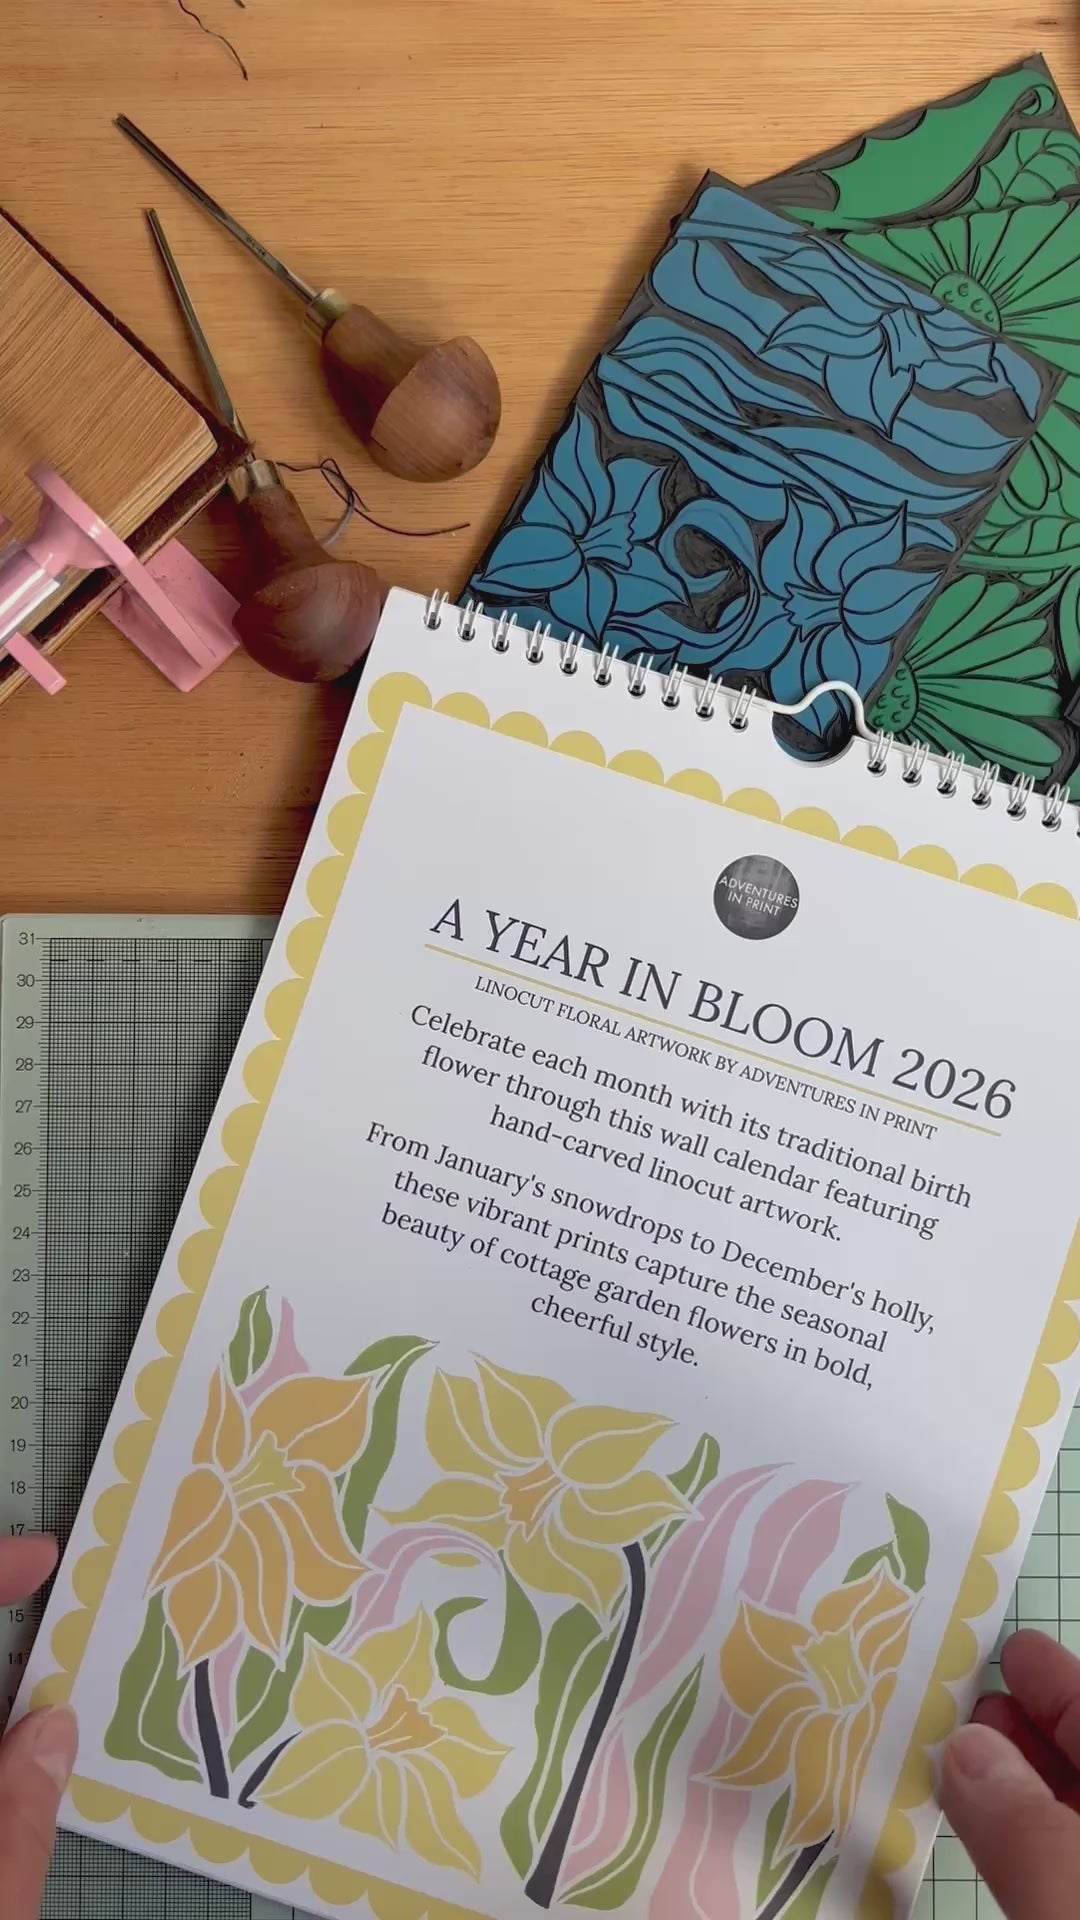 ADVENTURES
IN PRINT
A YEAR IN BLOOM 2026
LINOCUT FLORAL ARTWORK BY ADVENTURES IN PRINT
Celebrate each month with its traditional birth
flower through this wall calendar featuring
hand-carved linocut artwork.
From January's snowdrops to December's holly,
these vibrant prints capture the seasonal
beauty of cottage garden flowers in bold,
cheerful style.
31
30
29
28
27
26
25
24
23
22
21
20
19
18
17
15